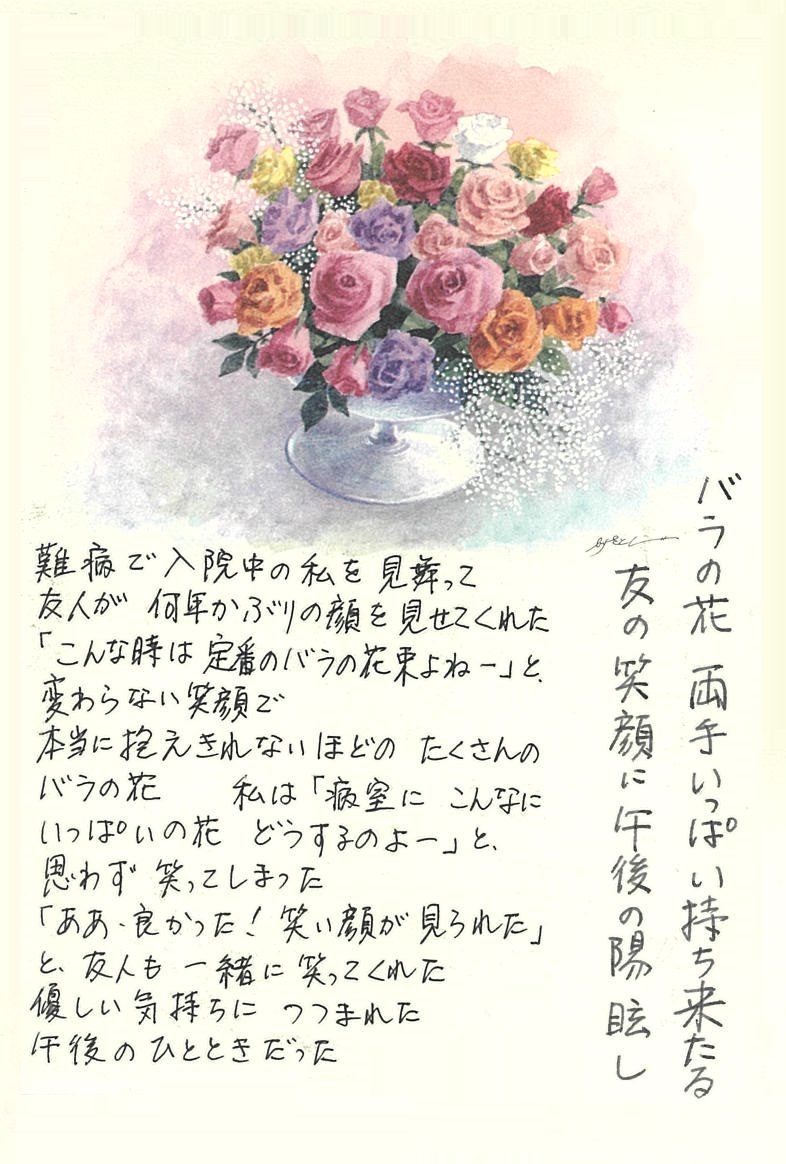 バラの花 両手いっぱい持ち来たる
友の笑顔に午後の陽眩し
難病で入院中の私を見舞って
友人が 何年かぶりの顔を見せてくれた
「こんな時は定番のバラの花束よねー」と、
変わらない笑顔で
本当に抱えきれないほどの たくさんの
バラの花 私は「病室に こんなに
いっぱいの花 どうするのよー」と、
思わず 笑ってしまった
「ああ、良かった！ 笑い顔が見られた」
と、友人も 一緒に笑ってくれた
優しい気持ちに つつまれた
午後のひとときだった